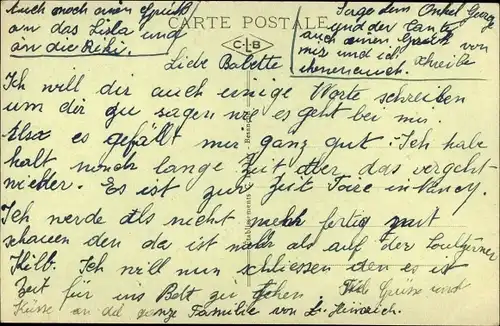 Auch noch einen Gruß
an das Lisla und
an die Rösi.
CARTE POSTALE
CLB
Sage dem Onkel George
und der Tante
auch einen Gruß von
mir und ich schreibe
ihnen auch.
Liebe Babette
Ich will dir auch einige Worte schreiben
um dir zu sagen wie es geht bei mir.
Also es gefällt mir ganz gut. Ich habe
halt noch lange Zeit aber das vergeht
wieder. Es ist zur Zeit Foire in Nancy.
Ich werde als nicht mehr fertig mit
schauen den da ist mehr als auf der
Kilb. Ich will nun schliessen den es ist
Zeit für ins Bett zu gehen. Viele Grüsse und
Küsse an die ganze Familie von